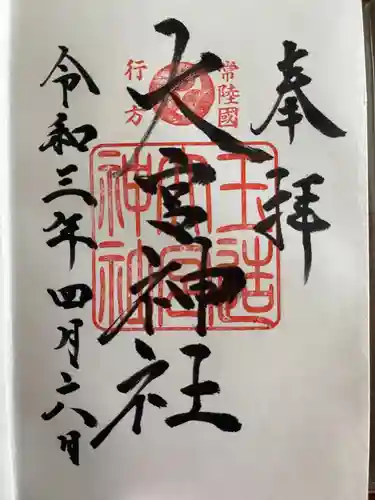 奉拝
常陸國
行方
大宮神社
玉造
大宮
神社
令和三年四月二八日